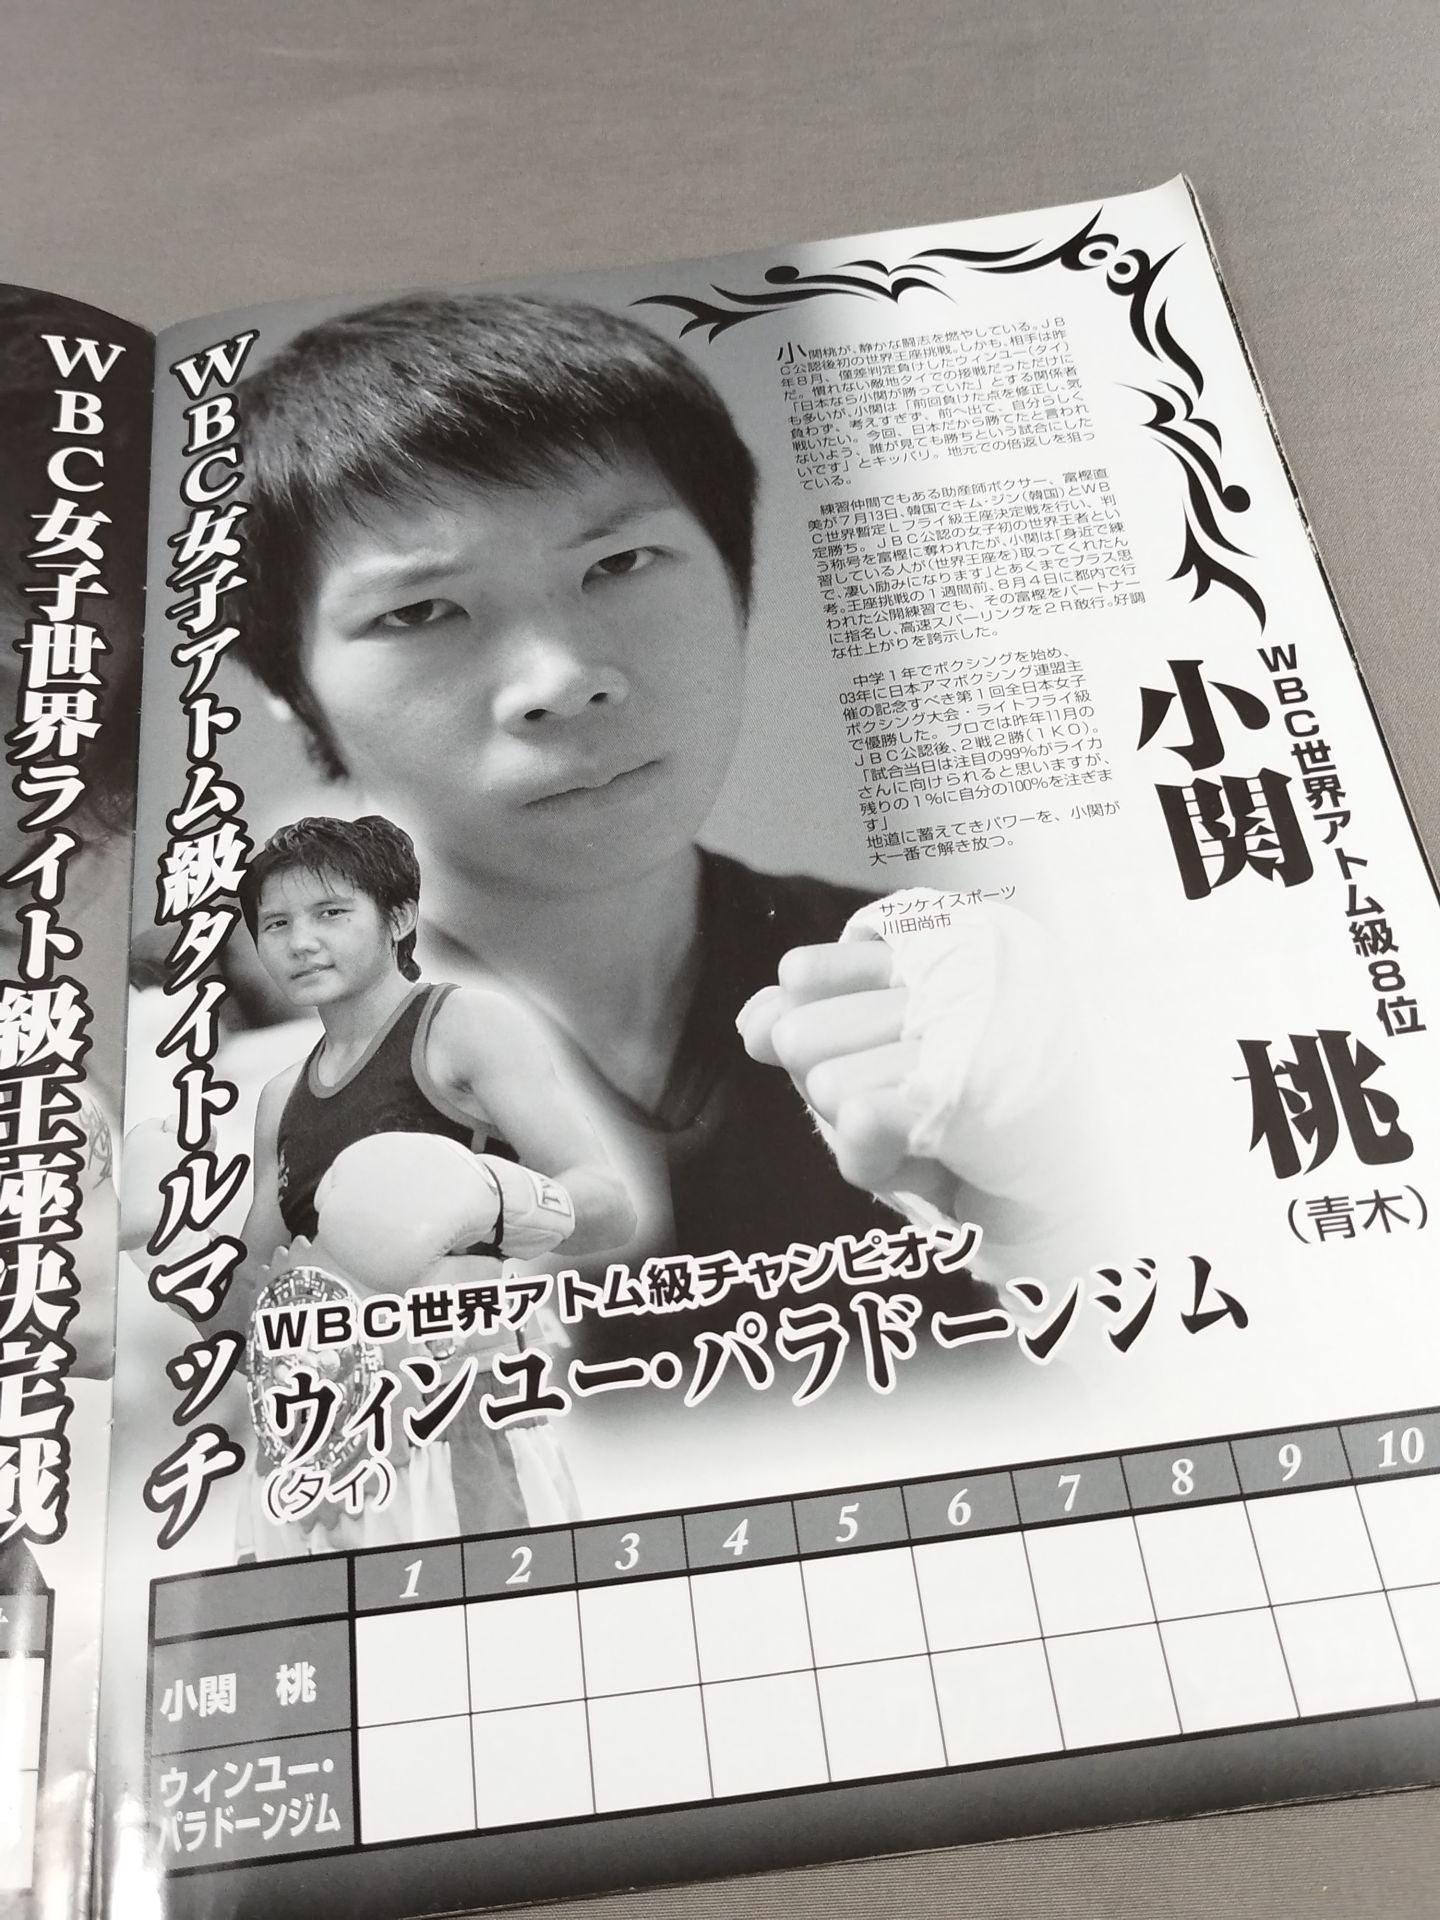 WBC女子世界ライト級王座決定戦
WBC女子アトム級タイトルマッチ
小関桃が、静かな闘志を燃やしている。JB
C公認後初の世界王座挑戦。しかも、相手は昨
年8月、僅差判定負けしたウィンユー(タイ)
だ。慣れない敵地タイでの接戦だっただけに
「日本なら小関が勝っていた」とする関係者
も多いが、小関は「前回負けた点を修正し、気
負わず、考えすぎず、前へ出て、自分らしく
戦いたい。今回、日本だから勝てたと言われ
ないよう、誰が見ても勝ちという試合にした
いです」とキッパリ。地元での倍返しを狙っ
ている。
練習仲間でもある助産師ボクサー、富樫直
美が7月13日、韓国でキム・ジン(韓国)とWB
C世界暫定Lフライ級王座決定戦を行い、判
定勝ち。JBC公認の女子初の世界王者とい
う称号を富樫に奪われたが、小関は「身近で練
習している人が(世界王座を)取ってくれたん
で、凄い励みになります」とあくまでプラス思
考。王座挑戦の1週間前、8月4日に都内で行
われた公開練習でも、その富樫をパートナー
に指名し、高速スパーリングを2R敢行。好調
な仕上がりを誇示した。
中学1年でボクシングを始め、
03年に日本アマボクシング連盟主
催の記念すべき第1回全日本女子
ボクシング大会・ライトフライ級
で優勝した。プロでは昨年11月の
JBC公認後、2戦2勝(1KO)。
「試合当日は注目の99%がライカ
さんに向けられると思いますが、
残りの1%に自分の100%を注ぎま
す」
地道に蓄えてきパワーを、小関が
大一番で解き放つ。
サンケイスポーツ
川田尚市
WBC世界アトム級8位
小関 桃
(青木)
WBC世界アトム級チャンピオン
ウィンユー・パラドーンジム
(タイ)
1 2 3 4 5 6 7 8 9 10
小関 桃
ウィンユー・
パラドーンジム